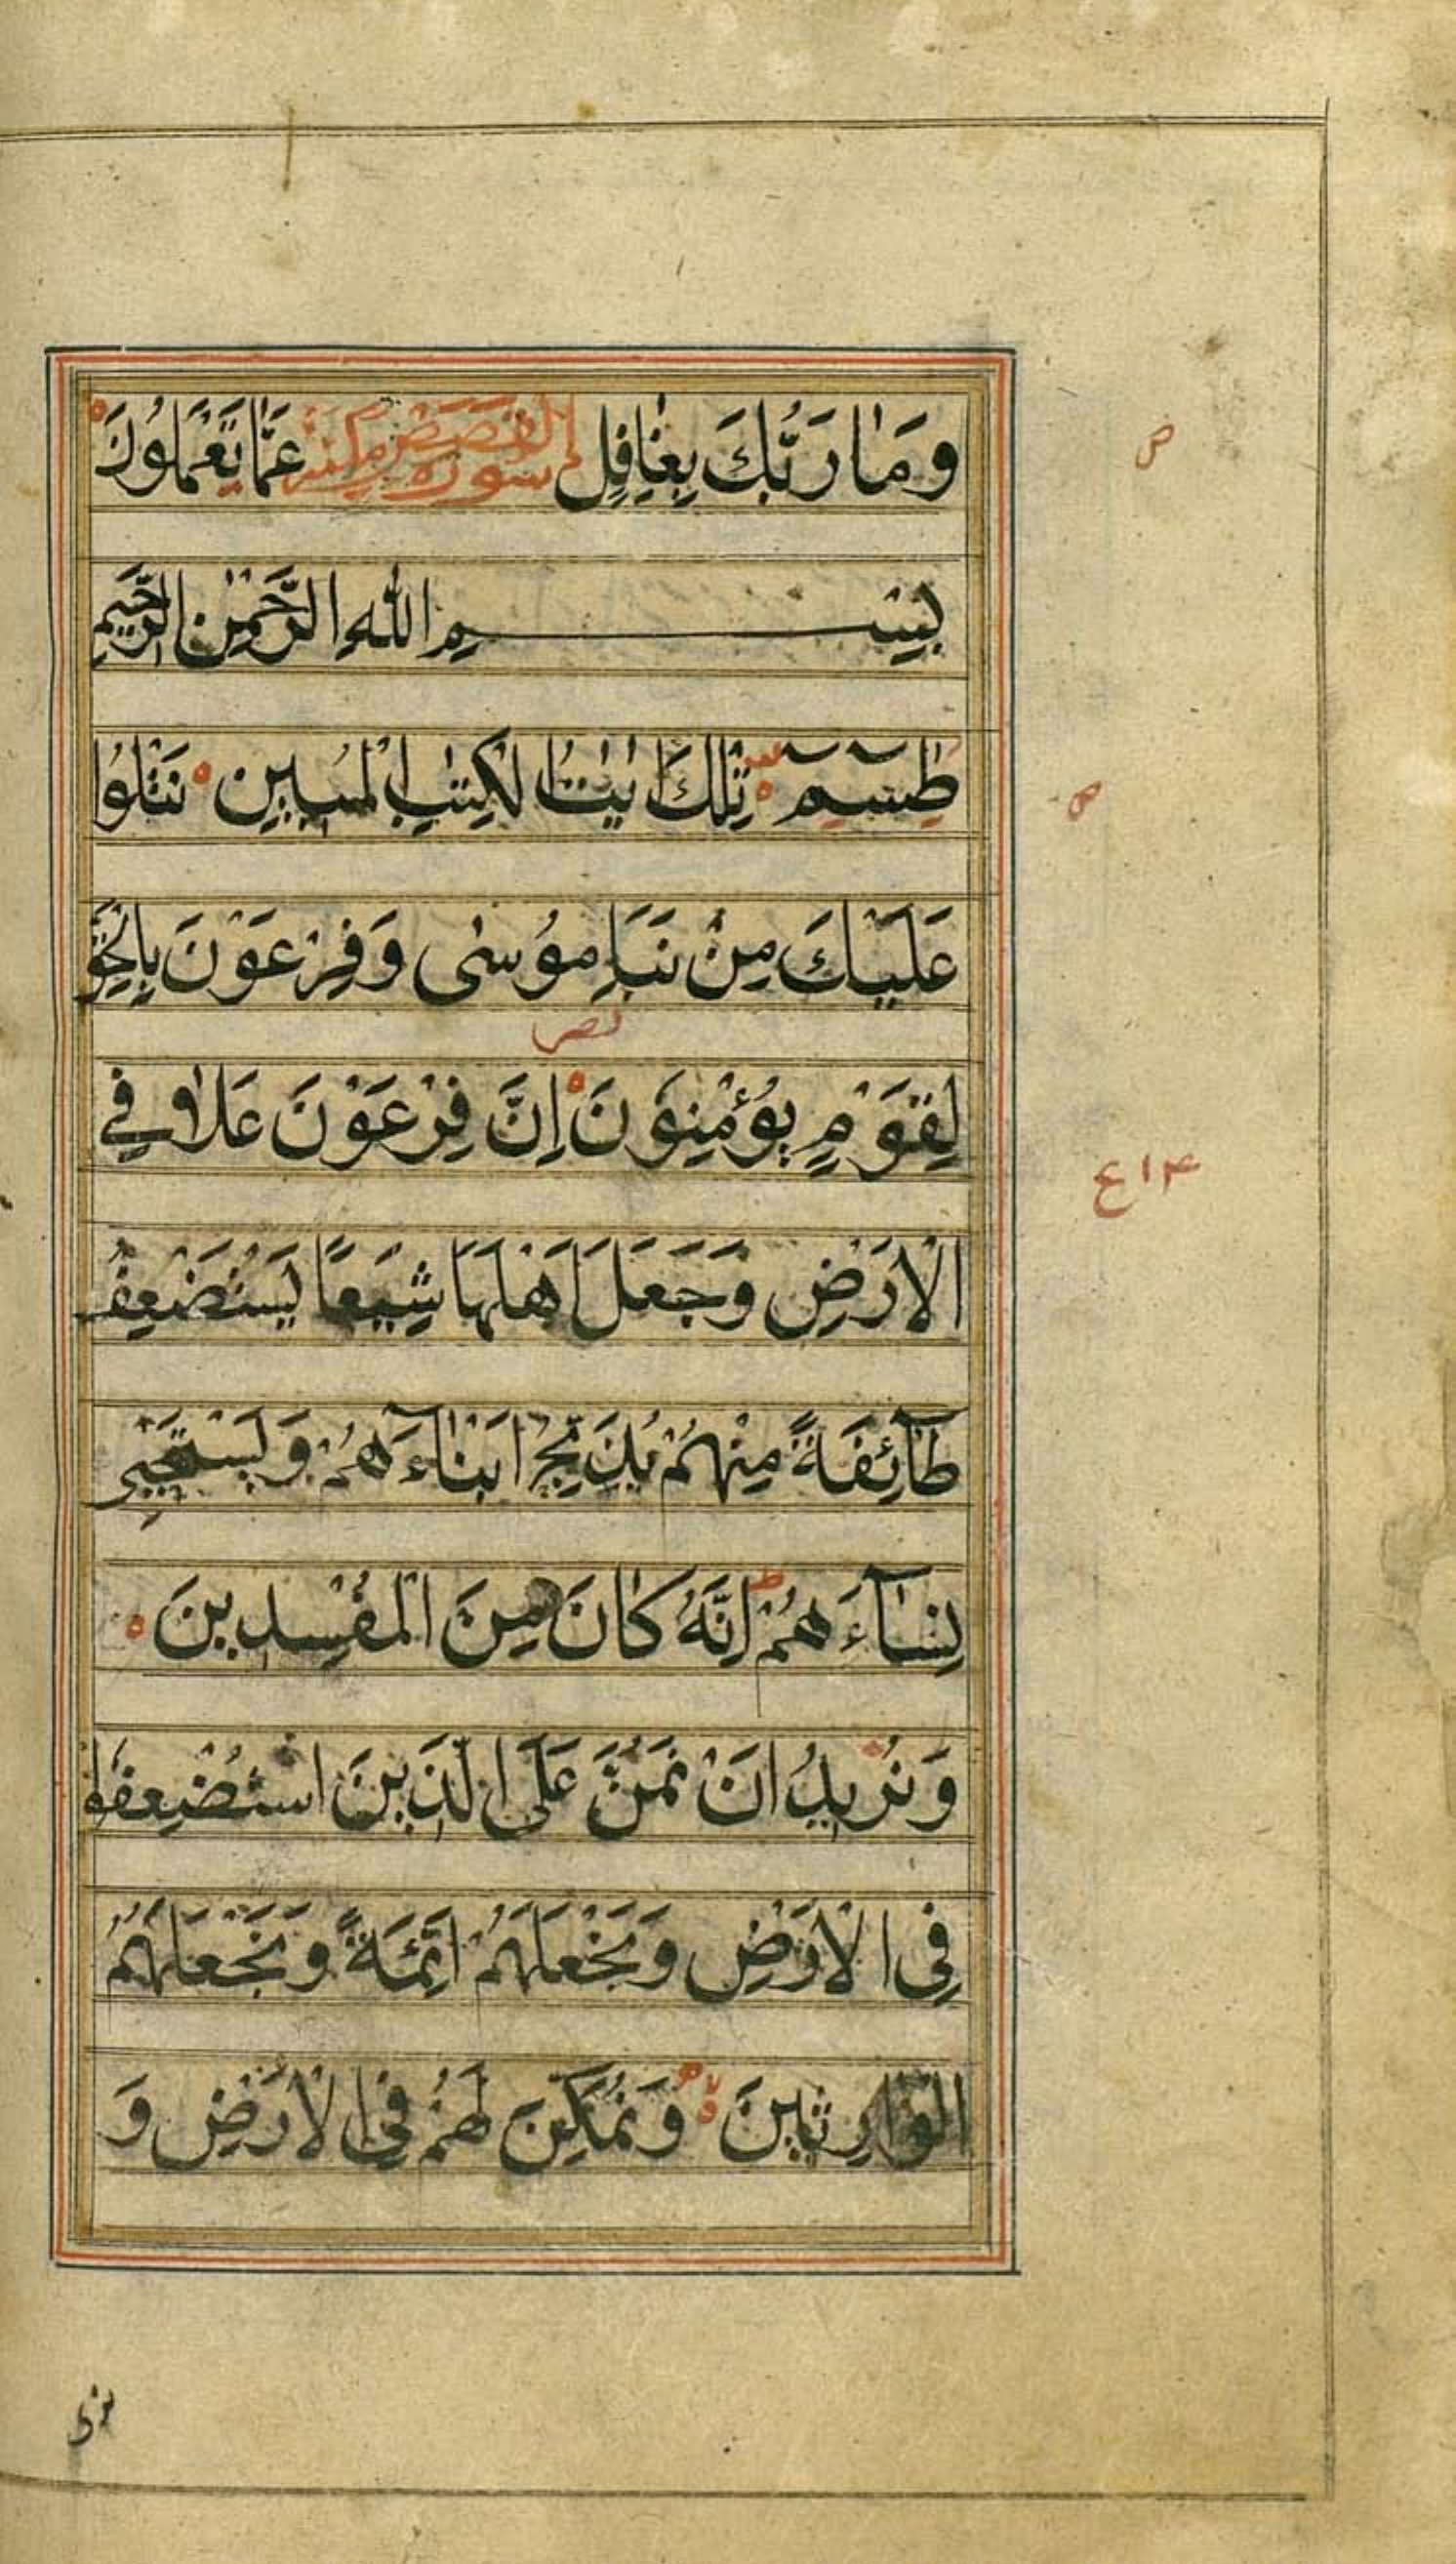 وَمَا رَبُّكَ بِغَافِلٍ سورة القصص مكية عَمَّا تَعْمَلُونَ
بِسْمِ اللهِ الرَّحْمٰنِ الرَّحِيمِ
طٰسٓمٓ تِلْكَ اٰيٰتُ الْكِتٰبِ الْمُبِينِ نَتْلُوا
عَلَيْكَ مِنْ نَبَاِ مُوسٰى وَفِرْعَوْنَ بِالْحَقِّ
لِقَوْمٍ يُؤْمِنُونَ اِنَّ فِرْعَوْنَ عَلَا فِي
الْاَرْضِ وَجَعَلَ اَهْلَهَا شِيَعًا يَسْتَضْعِفُ
طَآئِفَةً مِنْهُمْ يُذَبِّحُ اَبْنَآءَهُمْ وَيَسْتَحْيِي
نِسَآءَهُمْ اِنَّهُ كَانَ مِنَ الْمُفْسِدِينَ
وَنُرِيدُ اَنْ نَمُنَّ عَلَى الَّذِينَ اسْتُضْعِفُوا
فِي الْاَرْضِ وَنَجْعَلَهُمْ اَئِمَّةً وَنَجْعَلَهُمُ
الْوَارِثِينَ وَنُمَكِّنَ لَهُمْ فِي الْاَرْضِ وَ
نرى
ص
ص
ع ١٤